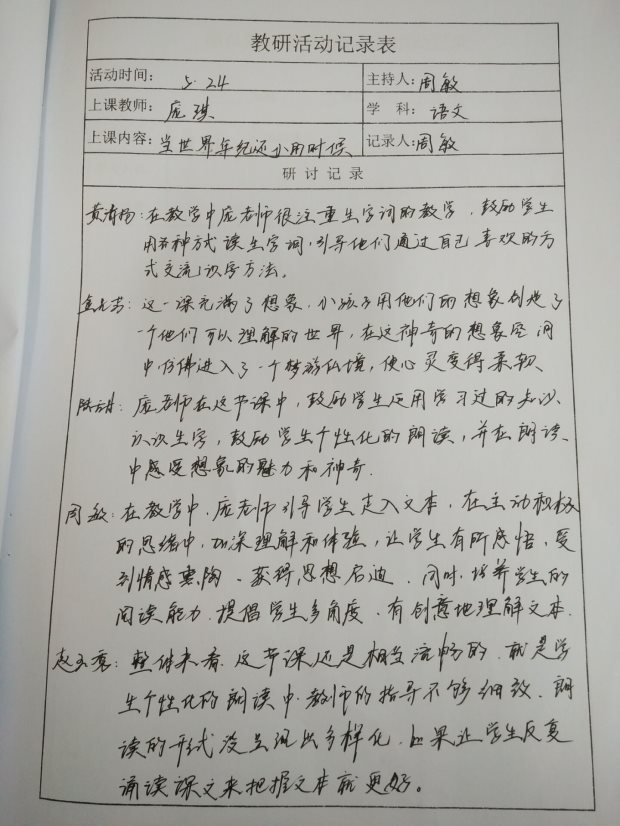 教研活动记录表
活动时间： 5.24 主持人：周敏
上课教师： 庞琪 学 科： 语文
上课内容：当世界年纪还小的时候 记录人：周敏
研 讨 记 录
在教学中庞老师很注重生字词的教学，鼓励学生
用各种方式读生字词，引导他们通过自己喜欢的方
式交流识字方法。
这一课充满了想象，小孩子用他们的想象创造了
一个他们可以理解的世界，在这神奇的想象空间
中仿佛进入了一个梦游仙境，使心灵变得柔软、
庞老师在这节课中，鼓励学生运用学习过的知识、
认识生字，鼓励学生个性化的朗读，并在朗读、
中感受想象的魅力和神奇.
周敏：在教学中，庞老师引导学生走入文本，在主动积极
的思绪中，加深理解和体验，让学生有所感悟，受
到情感熏陶、获得思想启迪、同时，培养学生的
阅读能力，提倡学生多角度、有创意地理解文本.
整体来看，这节课还是相当流畅的，就是学
生个性化的朗读中，教师的指导不够细致、朗
读的形式没呈现出多样化，如果让学生反复
诵读课文来把握文本就更好。